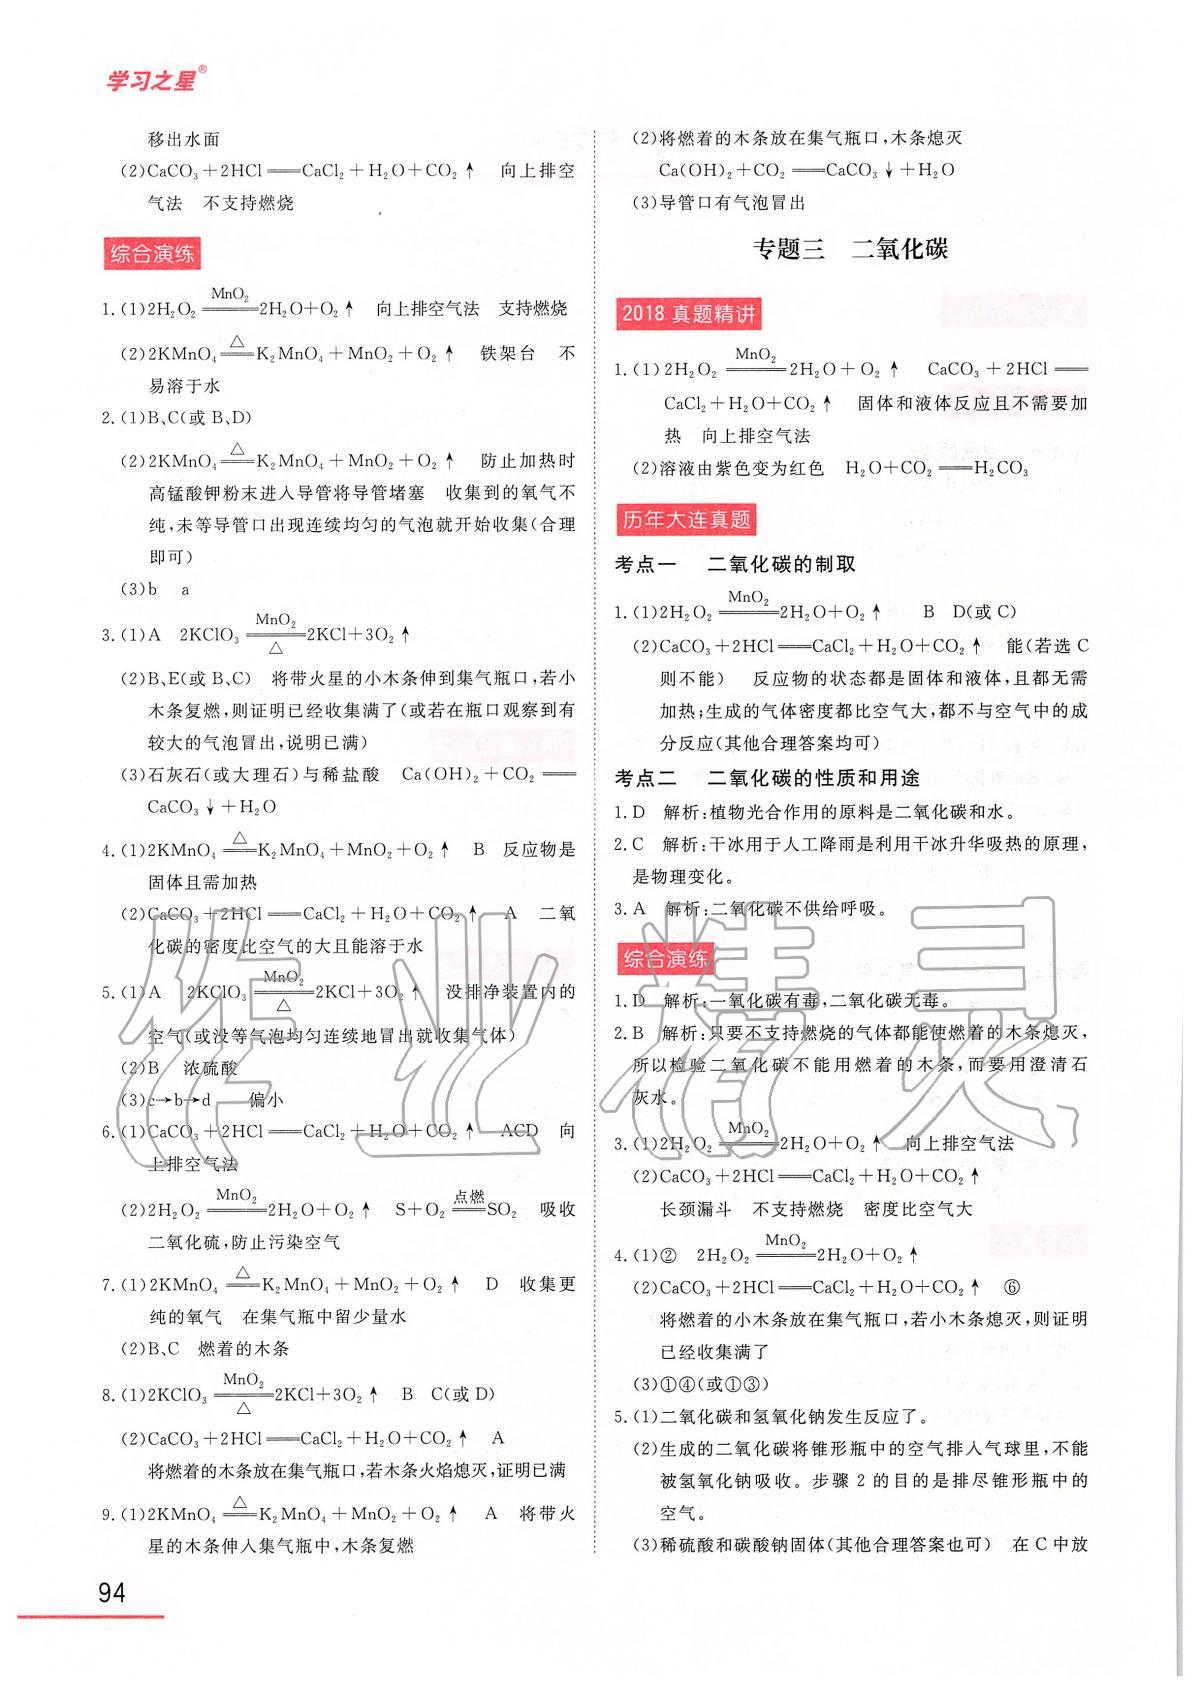 学习之星®
移出水面
(2)CaCO₃+2HCl══CaCl₂+H₂O+CO₂↑　向上排空
气法　不支持燃烧
综合演练
MnO₂
1.(1)2H₂O₂══2H₂O+O₂↑　向上排空气法　支持燃烧
△
(2)2KMnO₄══K₂MnO₄+MnO₂+O₂↑　铁架台　不
易溶于水
2.(1)B、C(或 B、D)
△
(2)2KMnO₄══K₂MnO₄+MnO₂+O₂↑　防止加热时
高锰酸钾粉末进入导管将导管堵塞　收集到的氧气不
纯,未等导管口出现连续均匀的气泡就开始收集(合理
即可)
(3)b　a
MnO₂
3.(1)A　2KClO₃══2KCl+3O₂↑
△
(2)B、E(或 B、C)　将带火星的小木条伸到集气瓶口,若小
木条复燃,则证明已经收集满了(或若在瓶口观察到有
较大的气泡冒出,说明已满)
(3)石灰石(或大理石)与稀盐酸　Ca(OH)₂+CO₂══
CaCO₃↓+H₂O
△
4.(1)2KMnO₄══K₂MnO₄+MnO₂+O₂↑　B　反应物是
固体且需加热
(2)CaCO₃+2HCl══CaCl₂+H₂O+CO₂↑　A　二氧
化碳的密度比空气的大且能溶于水
MnO₂
5.(1)A　2KClO₃══2KCl+3O₂↑　没排净装置内的
△
空气(或没等气泡均匀连续地冒出就收集气体)
(2)B　浓硫酸
(3)c→b→d　偏小
6.(1)CaCO₃+2HCl══CaCl₂+H₂O+CO₂↑　ACD　向
上排空气法
MnO₂　点燃
(2)2H₂O₂══2H₂O+O₂↑　S+O₂══SO₂　吸收
二氧化硫,防止污染空气
△
7.(1)2KMnO₄══K₂MnO₄+MnO₂+O₂↑　D　收集更
纯的氧气　在集气瓶中留少量水
(2)B、C　燃着的木条
MnO₂
8.(1)2KClO₃══2KCl+3O₂↑　B　C(或 D)
△
(2)CaCO₃+2HCl══CaCl₂+H₂O+CO₂↑　A
将燃着的木条放在集气瓶口,若木条火焰熄灭,证明已满
△
9.(1)2KMnO₄══K₂MnO₄+MnO₂+O₂↑　A　将带火
星的木条伸入集气瓶中,木条复燃
94
(2)将燃着的木条放在集气瓶口,木条熄灭
Ca(OH)₂+CO₂══CaCO₃↓+H₂O
(3)导管口有气泡冒出
专题三　二氧化碳
2018 真题精讲
MnO₂
1.(1)2H₂O₂══2H₂O+O₂↑　CaCO₃+2HCl══
CaCl₂+H₂O+CO₂↑　固体和液体反应且不需要加
热　向上排空气法
(2)溶液由紫色变为红色　H₂O+CO₂══H₂CO₃
历年大连真题
考点一　二氧化碳的制取
MnO₂
1.(1)2H₂O₂══2H₂O+O₂↑　B　D(或 C)
(2)CaCO₃+2HCl══CaCl₂+H₂O+CO₂↑　能(若选 C
则不能)　反应物的状态都是固体和液体,且都无需
加热;生成的气体密度都比空气大,都不与空气中的成
分反应(其他合理答案均可)
考点二　二氧化碳的性质和用途
1.D　解析:植物光合作用的原料是二氧化碳和水。
2.C　解析:干冰用于人工降雨是利用干冰升华吸热的原理,
是物理变化。
3.A　解析:二氧化碳不供给呼吸。
综合演练
1.D　解析:一氧化碳有毒,二氧化碳无毒。
2.B　解析:只要不支持燃烧的气体都能使燃着的木条熄灭,
所以检验二氧化碳不能用燃着的木条,而要用澄清石
灰水。
MnO₂
3.(1)2H₂O₂══2H₂O+O₂↑　向上排空气法
(2)CaCO₃+2HCl══CaCl₂+H₂O+CO₂↑
长颈漏斗　不支持燃烧　密度比空气大
MnO₂
4.(1)②　2H₂O₂══2H₂O+O₂↑
(2)CaCO₃+2HCl══CaCl₂+H₂O+CO₂↑　⑥
将燃着的小木条放在集气瓶口,若小木条熄灭,则证明
已经收集满了
(3)①④(或①③)
5.(1)二氧化碳和氢氧化钠发生反应了。
(2)生成的二氧化碳将锥形瓶中的空气排入气球里,不能
被氢氧化钠吸收。步骤 2 的目的是排尽锥形瓶中的
空气。
(3)稀硫酸和碳酸钠固体(其他合理答案也可)　在 C 中放
作业精灵